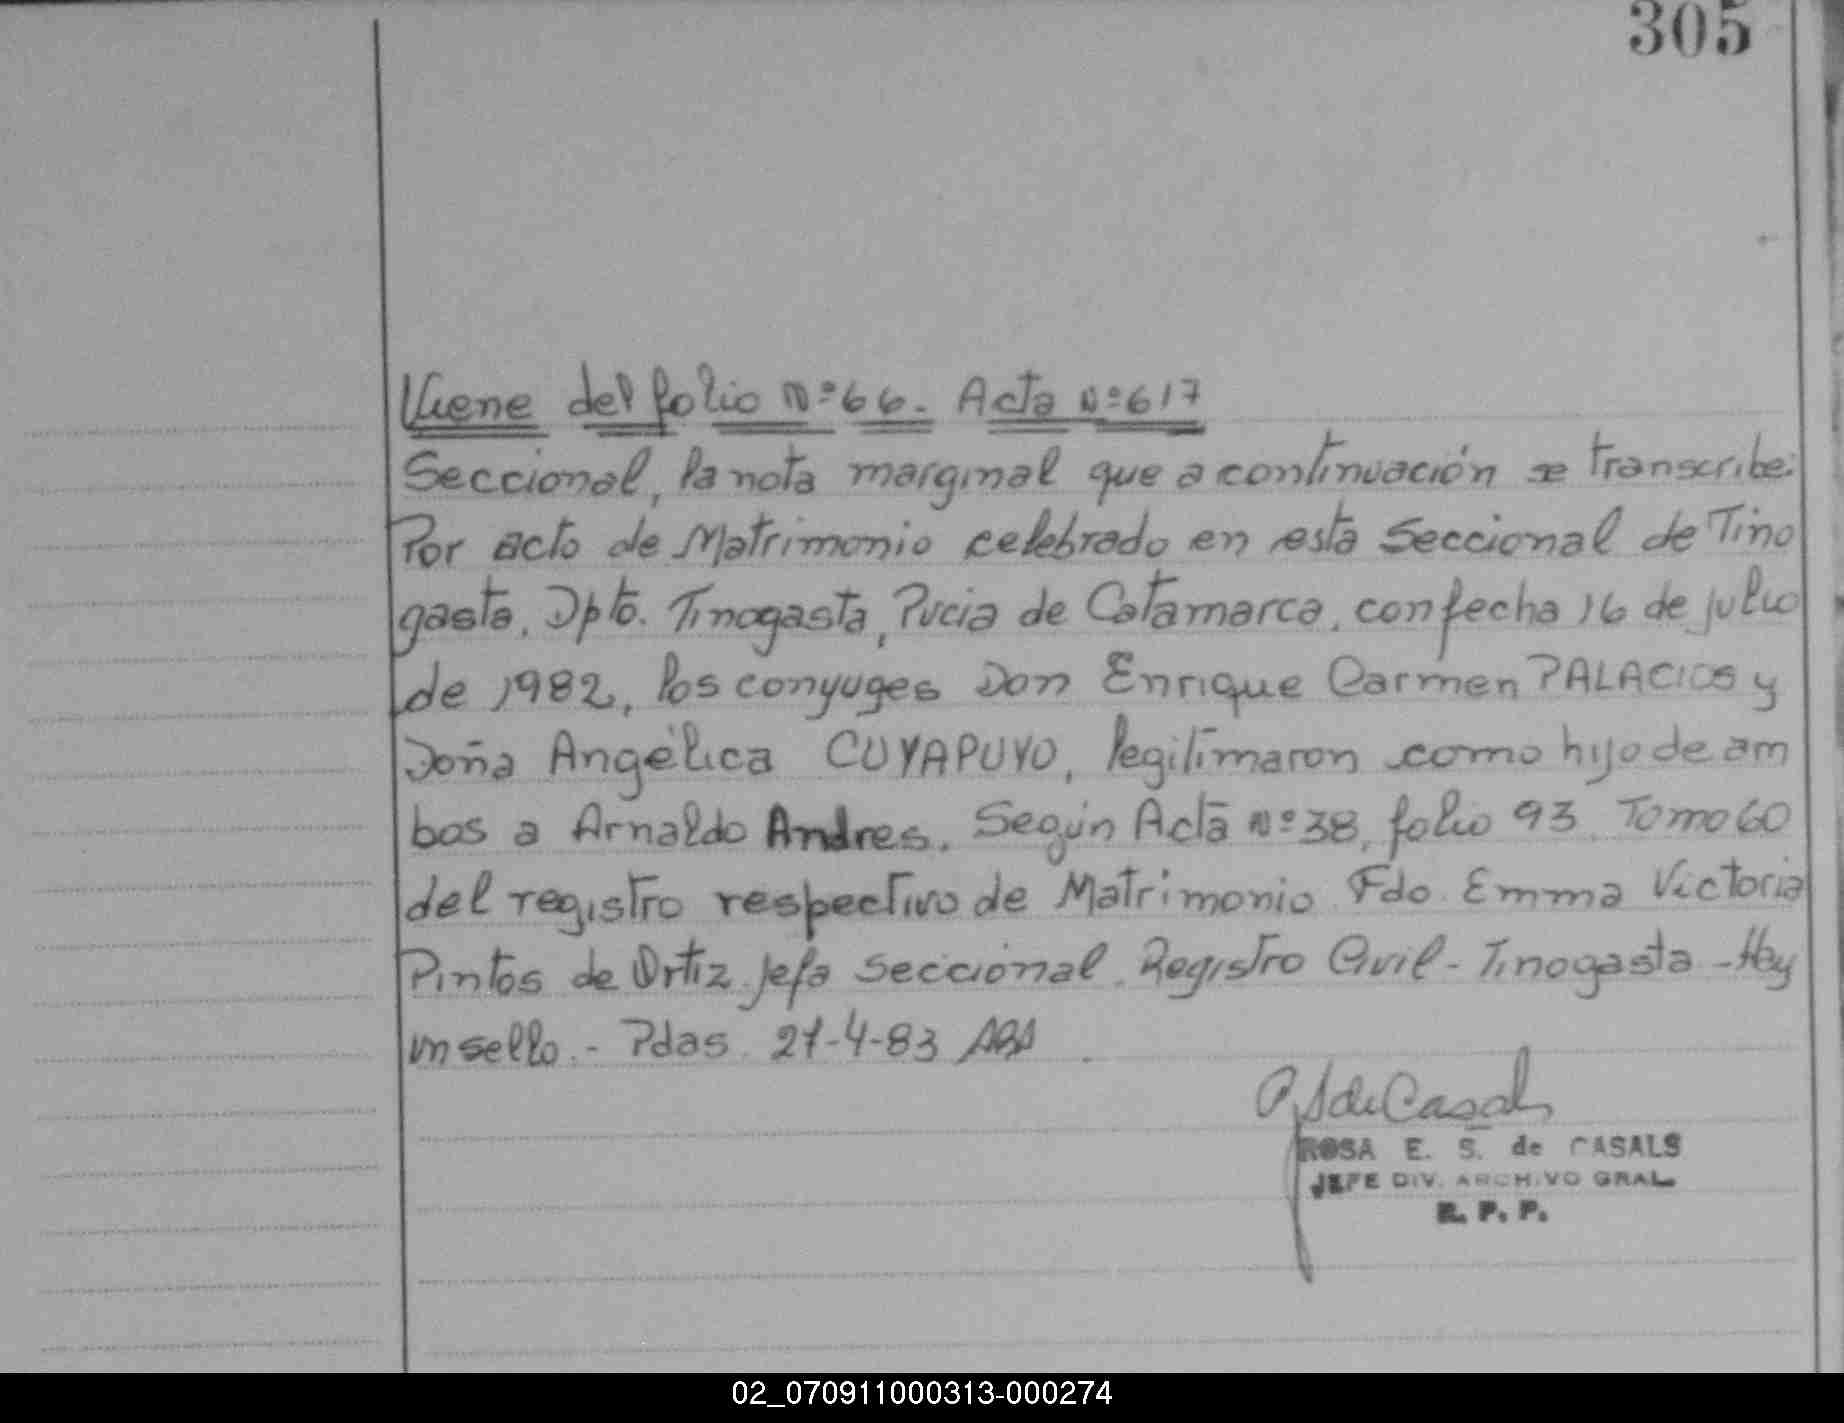 305
Viene del folio Nº 66. Acta Nº 617
Seccional, la nota marginal que a continuación se transcribe:
Por acto de Matrimonio celebrado en esta Seccional de Tino
gasta, Dpto. Tinogasta, Pvcia de Catamarca, con fecha 16 de julio
de 1982, los conyuges Don Enrique Carmen PALACIOS y
Doña Angélica CUYAPUYO, legitimaron como hijo de am
bos a Arnaldo Andres. Según Acta Nº 38, folio 93. Tomo 60
del registro respectivo de Matrimonio. Fdo. Emma Victoria
Pintos de Ortiz. Jefa Seccional. Registro Civil - Tinogasta - Hay
un sello. - Pdas. 27-4-83
de Casals
ROSA E. S. de CASALS
JEFE DIV. ARCHIVO GRAL.
R. P. P.
02_070911000313-000274